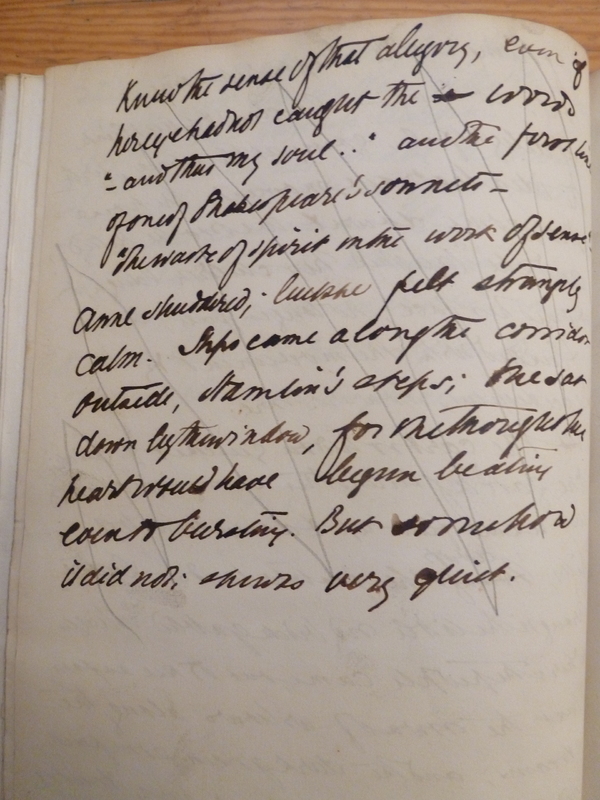 Know the sense of that allegory, even if
her eye had not caught the words
"– and thus my soul.." and the first line
of one of Shakespeare's sonnets –
"The waste of spirit in the work of sense"
Anne shuddered; but she felt strangely
calm. Steps came along the corridor
outside, Hamlin's steps; She sat
down by the window, for she thought her
heart would have begun beating
even to bursting. But somehow
it did not; she was very quiet.